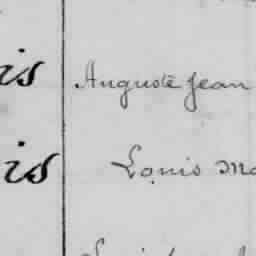 is Auguste Jean
is Louis